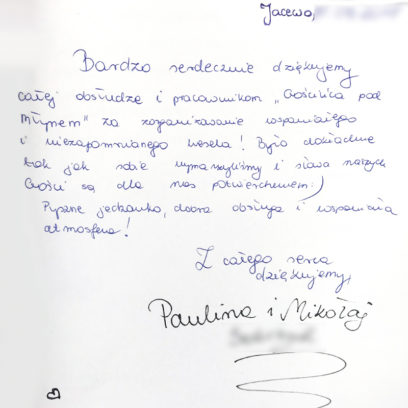 Jacewo,
Bardzo serdecznie dziękujemy
całej obsłudze i pracownikom "Gościńca pod
Młynem" za zorganizowanie wspaniałego
i niezapomnianego wesela! Było dokładnie
tak jak sobie wymarzyliśmy i słowa naszych
Gości są dla nas potwierdzeniem :)
Pyszne jedzonko, dobra obsługa i wspaniała
atmosfera!
Z całego serca
dziękujemy,
Paulina i Mikołaj